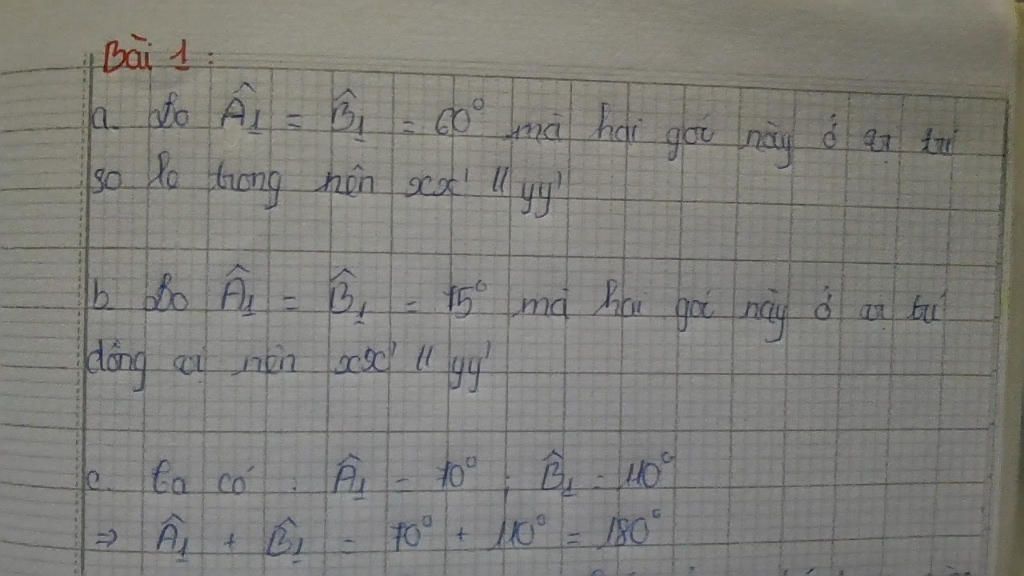 Bài 1 :
a. Do Â₁ = B̂₁ = 60° mà hai góc này ở vị trí
so le trong nên xx' // yy'
b. Do Â₁ = B̂₁ = 75° mà hai góc này ở vị trí
đồng vị nên xx' // yy'
c. Ta có : Â₁ = 70° ; B̂₁ = 110°
⇒ Â₁ + B̂₁ = 70° + 110° = 180°